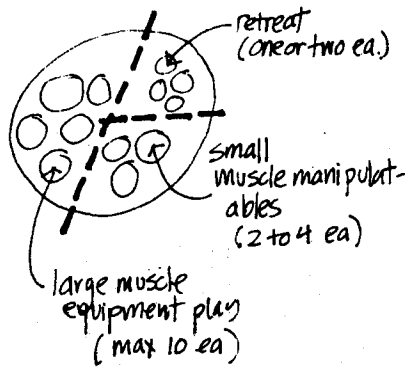 retreat
(one or two ea.)
small
muscle manipulat-
ables
(2 to 4 ea)
large muscle
equipment play
(max 10 ea)